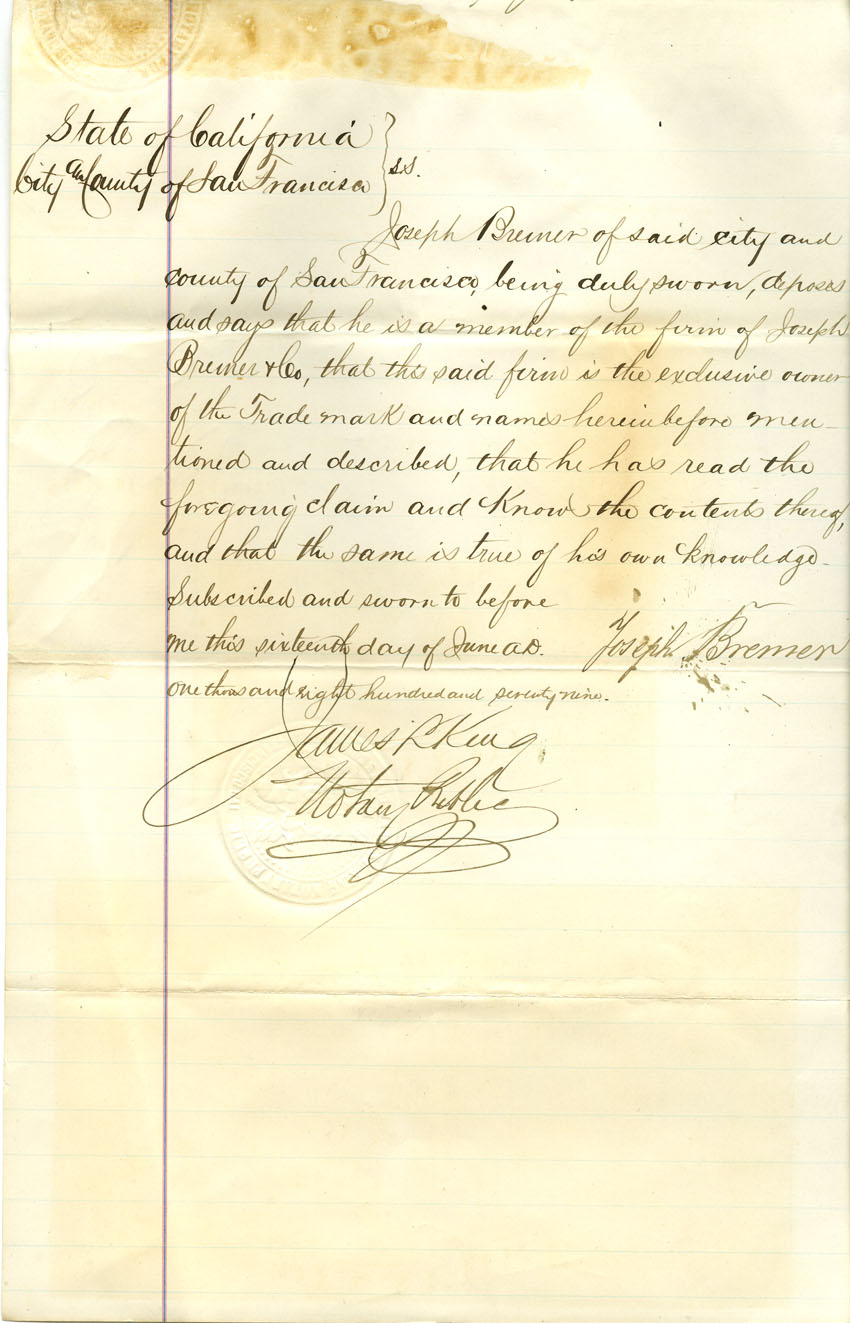 State of California
City and County of San Francisco } ss.
Joseph Bremer of said city and
county of San Francisco, being duly sworn, deposes
and says that he is a member of the firm of Joseph
Bremer & Co, that the said firm is the exclusive owner
of the Trade mark and names hereinbefore men-
tioned and described, that he has read the
foregoing claim and Know the contents thereof,
and that the same is true of his own knowledge.
Subscribed and sworn to before
me this sixteenth day of June A.D. Joseph Bremer
one thousand eight hundred and seventy nine.
James L King
Notary Public